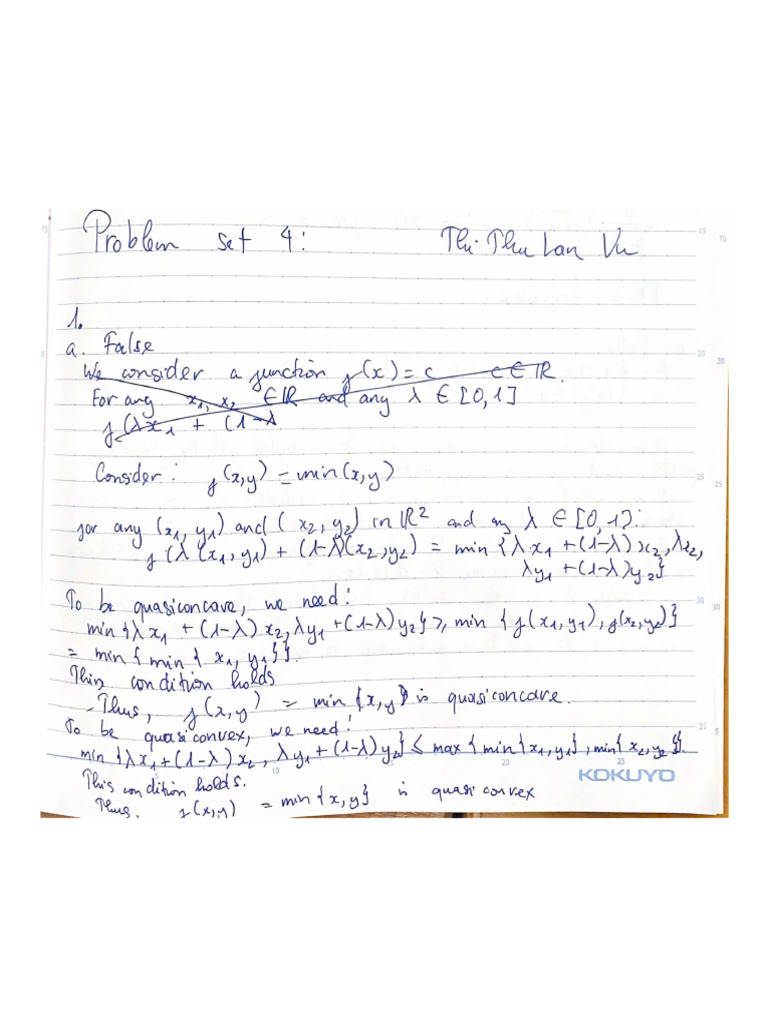 Problem set 4: Thi Thu Lan Vu
1.
a. False
We consider a function f(x) = c c ∈ ℝ.
For any x₁, x₂ ∈ ℝ and any λ ∈ [0,1]
f(λx₁ + (1-λ
Consider: f(x,y) = min(x,y)
for any (x₁, y₁) and (x₂, y₂) in ℝ² and any λ ∈ [0,1):
f(λ(x₁,y₁) + (1-λ)(x₂,y₂) = min{λx₁ + (1-λ)x₂,
λy₁ + (1-λ)y₂}
To be quasiconcave, we need:
min{λx₁ + (1-λ)x₂, λy₁ + (1-λ)y₂} ≥ min{f(x₁,y₁), f(x₂,y₂)}
= min{min{x₁, y₁}}.
This condition holds
Thus, f(x,y) = min{x,y} is quasiconcave.
To be quasiconvex, we need:
min{λx₁ + (1-λ)x₂, λy₁ + (1-λ)y₂} ≤ max{min{x₁,y₁}, min{x₂,y₂}}.
This condition holds.
Thus, f(x,y) = min{x,y} is quasiconvex
KOKUYO